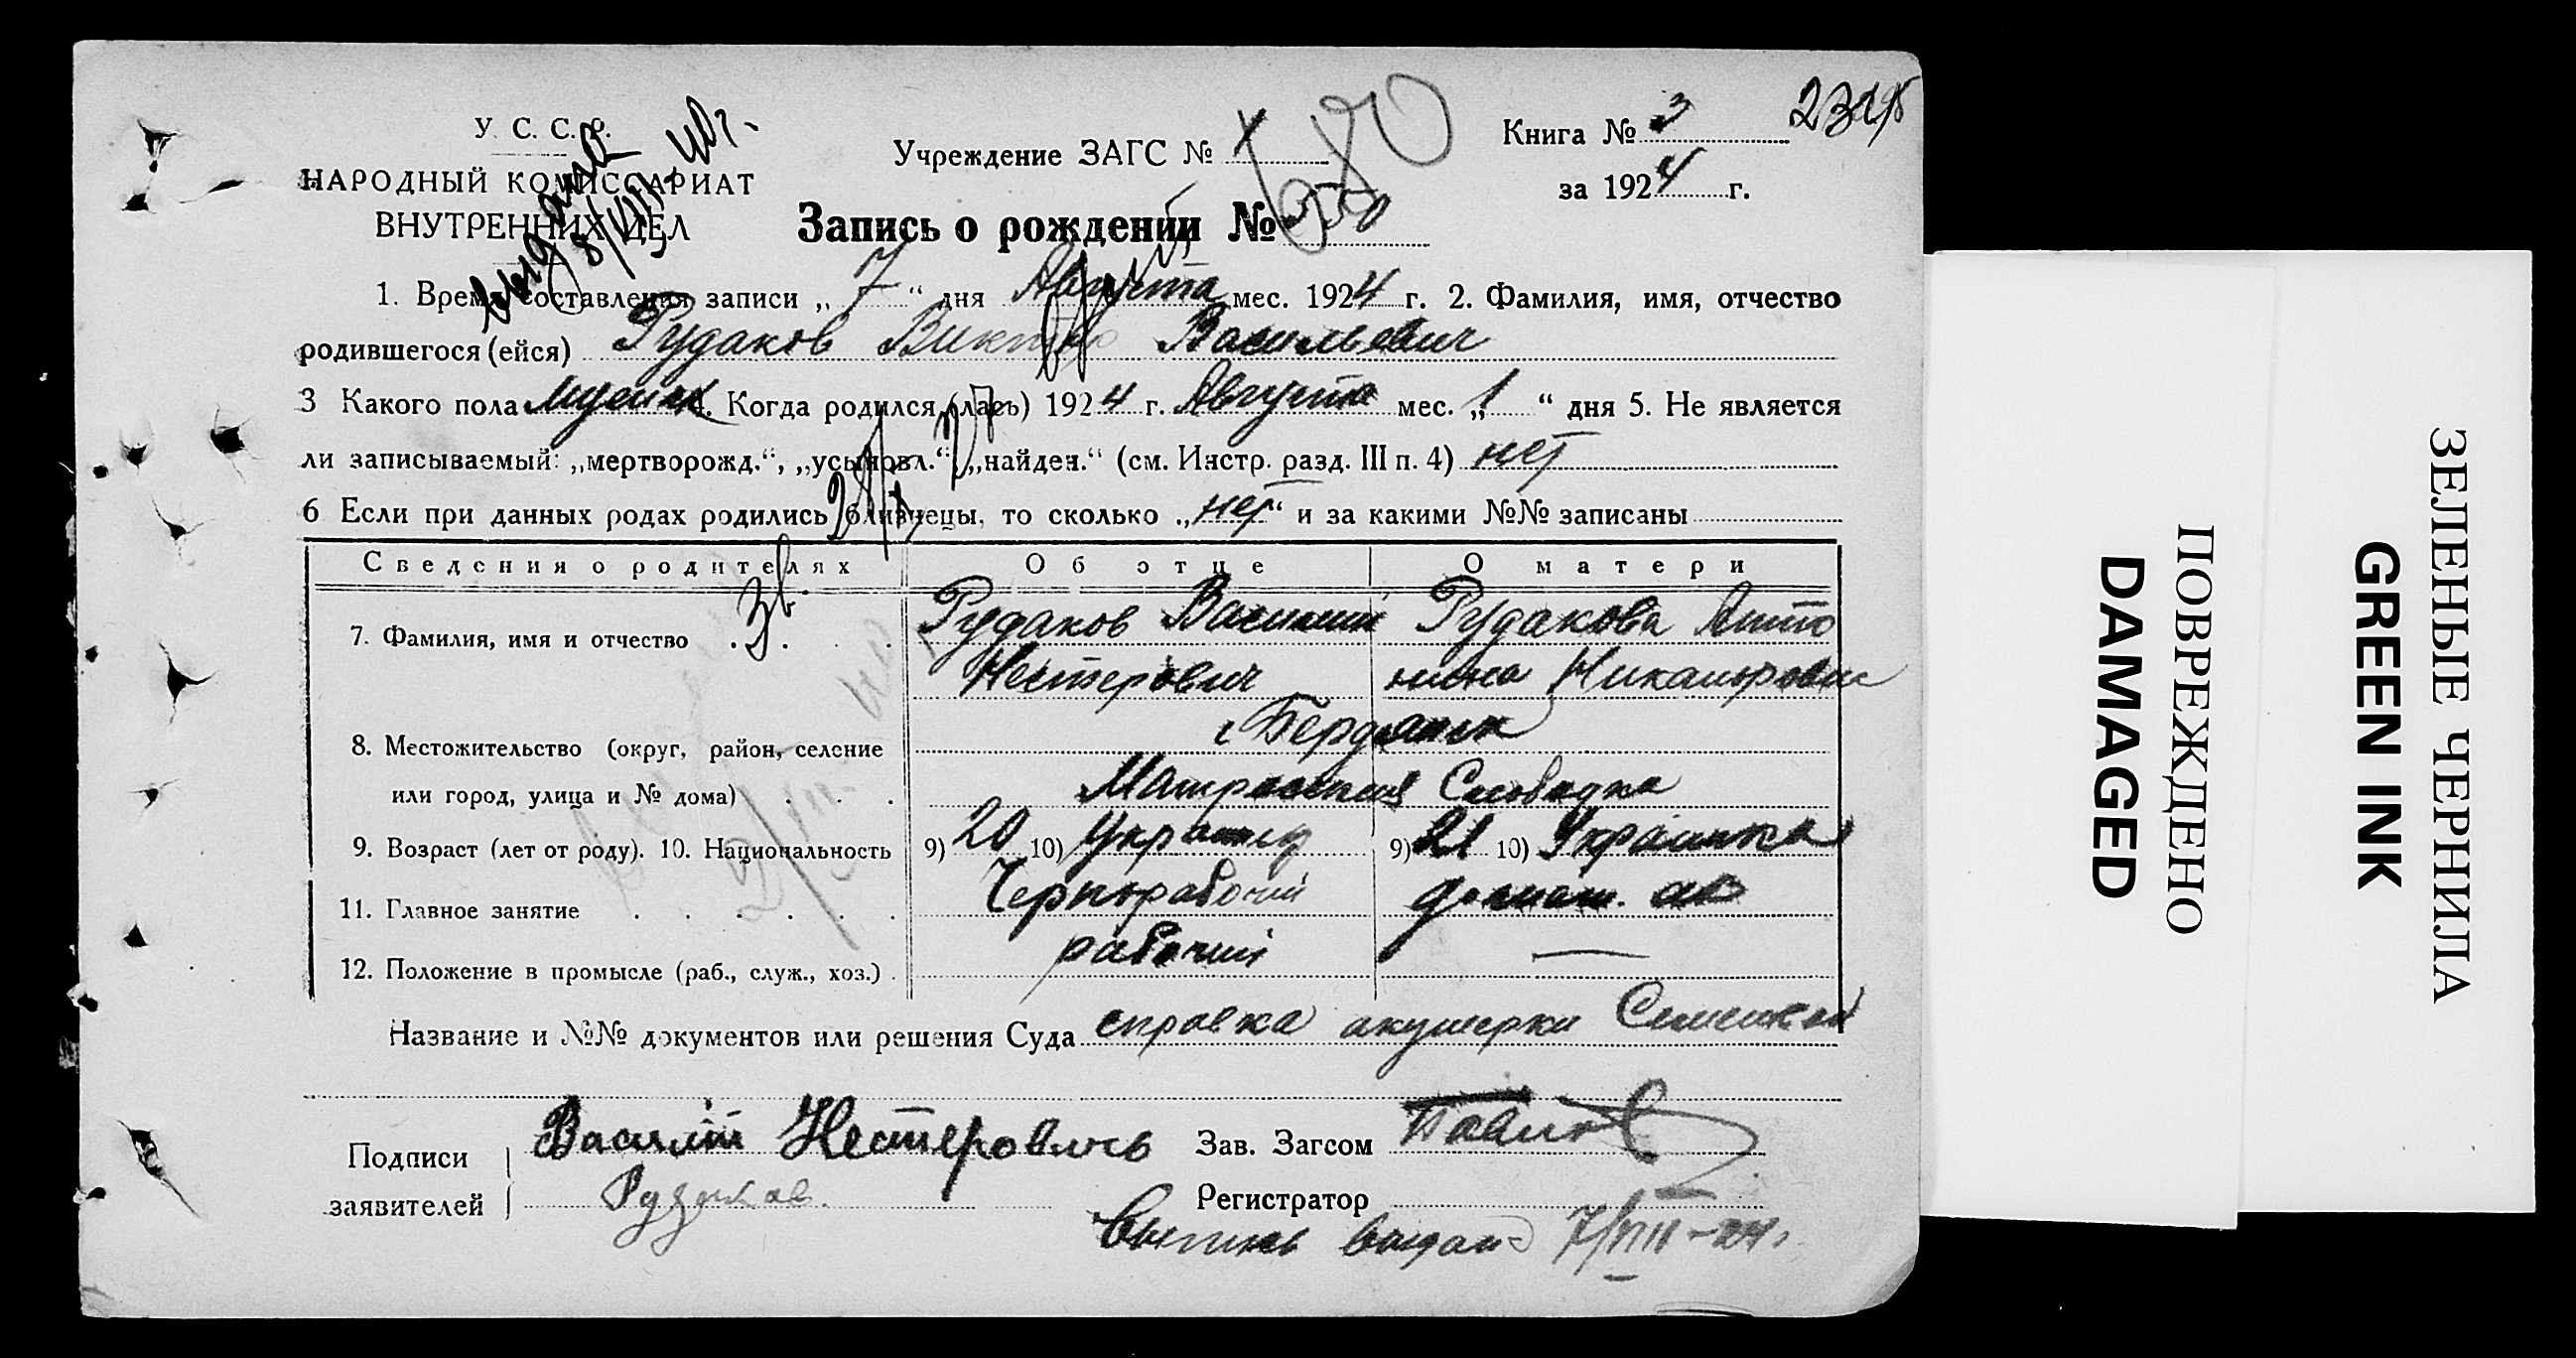 У. С. С. Р.
НАРОДНЫЙ КОМИССАРИАТ
ВНУТРЕННИХ ДЕЛ
Учреждение ЗАГС №
Книга № 3
за 1924 г.
Запись о рождении №
1. Время составления записи „ 7 “ дня Августа мес. 1924 г. 2. Фамилия, имя, отчество
родившегося (ейся) Рудаков Виктор Васильевич
3 Какого пола 4. Когда родился (лась) 1924 г. Августа мес. „ 1 “ дня 5. Не является
ли записываемый: „мертворожд.“, „усыновл.“, „найден.“ (см. Инстр. разд. III п. 4) нет
6 Если при данных родах родились близнецы, то сколько „ нет “ и за какими №№ записаны
Сведения о родителях Об отце О матери
7. Фамилия, имя и отчество Рудаков Василий Рудакова Анто
Нестерович нина
8. Местожительство (округ, район, селение г Бердянск
или город, улица и № дома) Матросская Слободка
9. Возраст (лет от роду). 10. Национальность 9) 20 10) 9) 21 10) Украинка
11. Главное занятие Чернорабочий
12. Положение в промысле (раб., служ., хоз.) рабочий —
Название и №№ документов или решения Суда справка акушерки
Подписи заявителей Василий Нестеровичь
Рудаков.
Зав. Загсом
Регистратор
Выпись выдана 7/VIII-24.
ПОВРЕЖДЕНО
DAMAGED
ЗЕЛЕНЫЕ ЧЕРНИЛА
GREEN INK